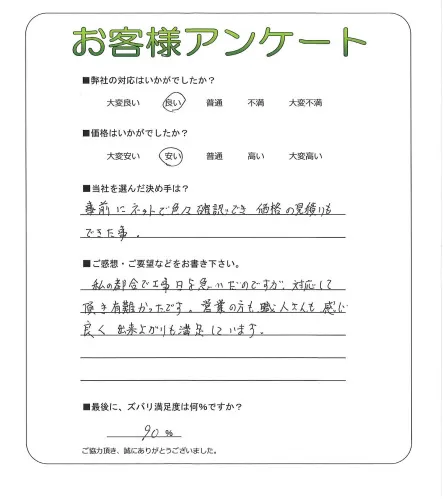 お客様アンケート
■弊社の対応はいかがでしたか?
大変良い 良い 普通 不満 大変不満
■価格はいかがでしたか?
大変安い 安い 普通 高い 大変高い
■当社を選んだ決め手は?
事前にネットで色々確認でき 価格の見積りも
できた事。
■ご感想・ご要望などをお書き下さい。
私の都合で工事日を急いだのですが、対応して
頂き有難かったです。営業の方も職人さんも感じ
良く 出来上がりも満足しています。
■最後に、ズバリ満足度は何%ですか?
90 %
ご協力頂き、誠にありがとうございました。